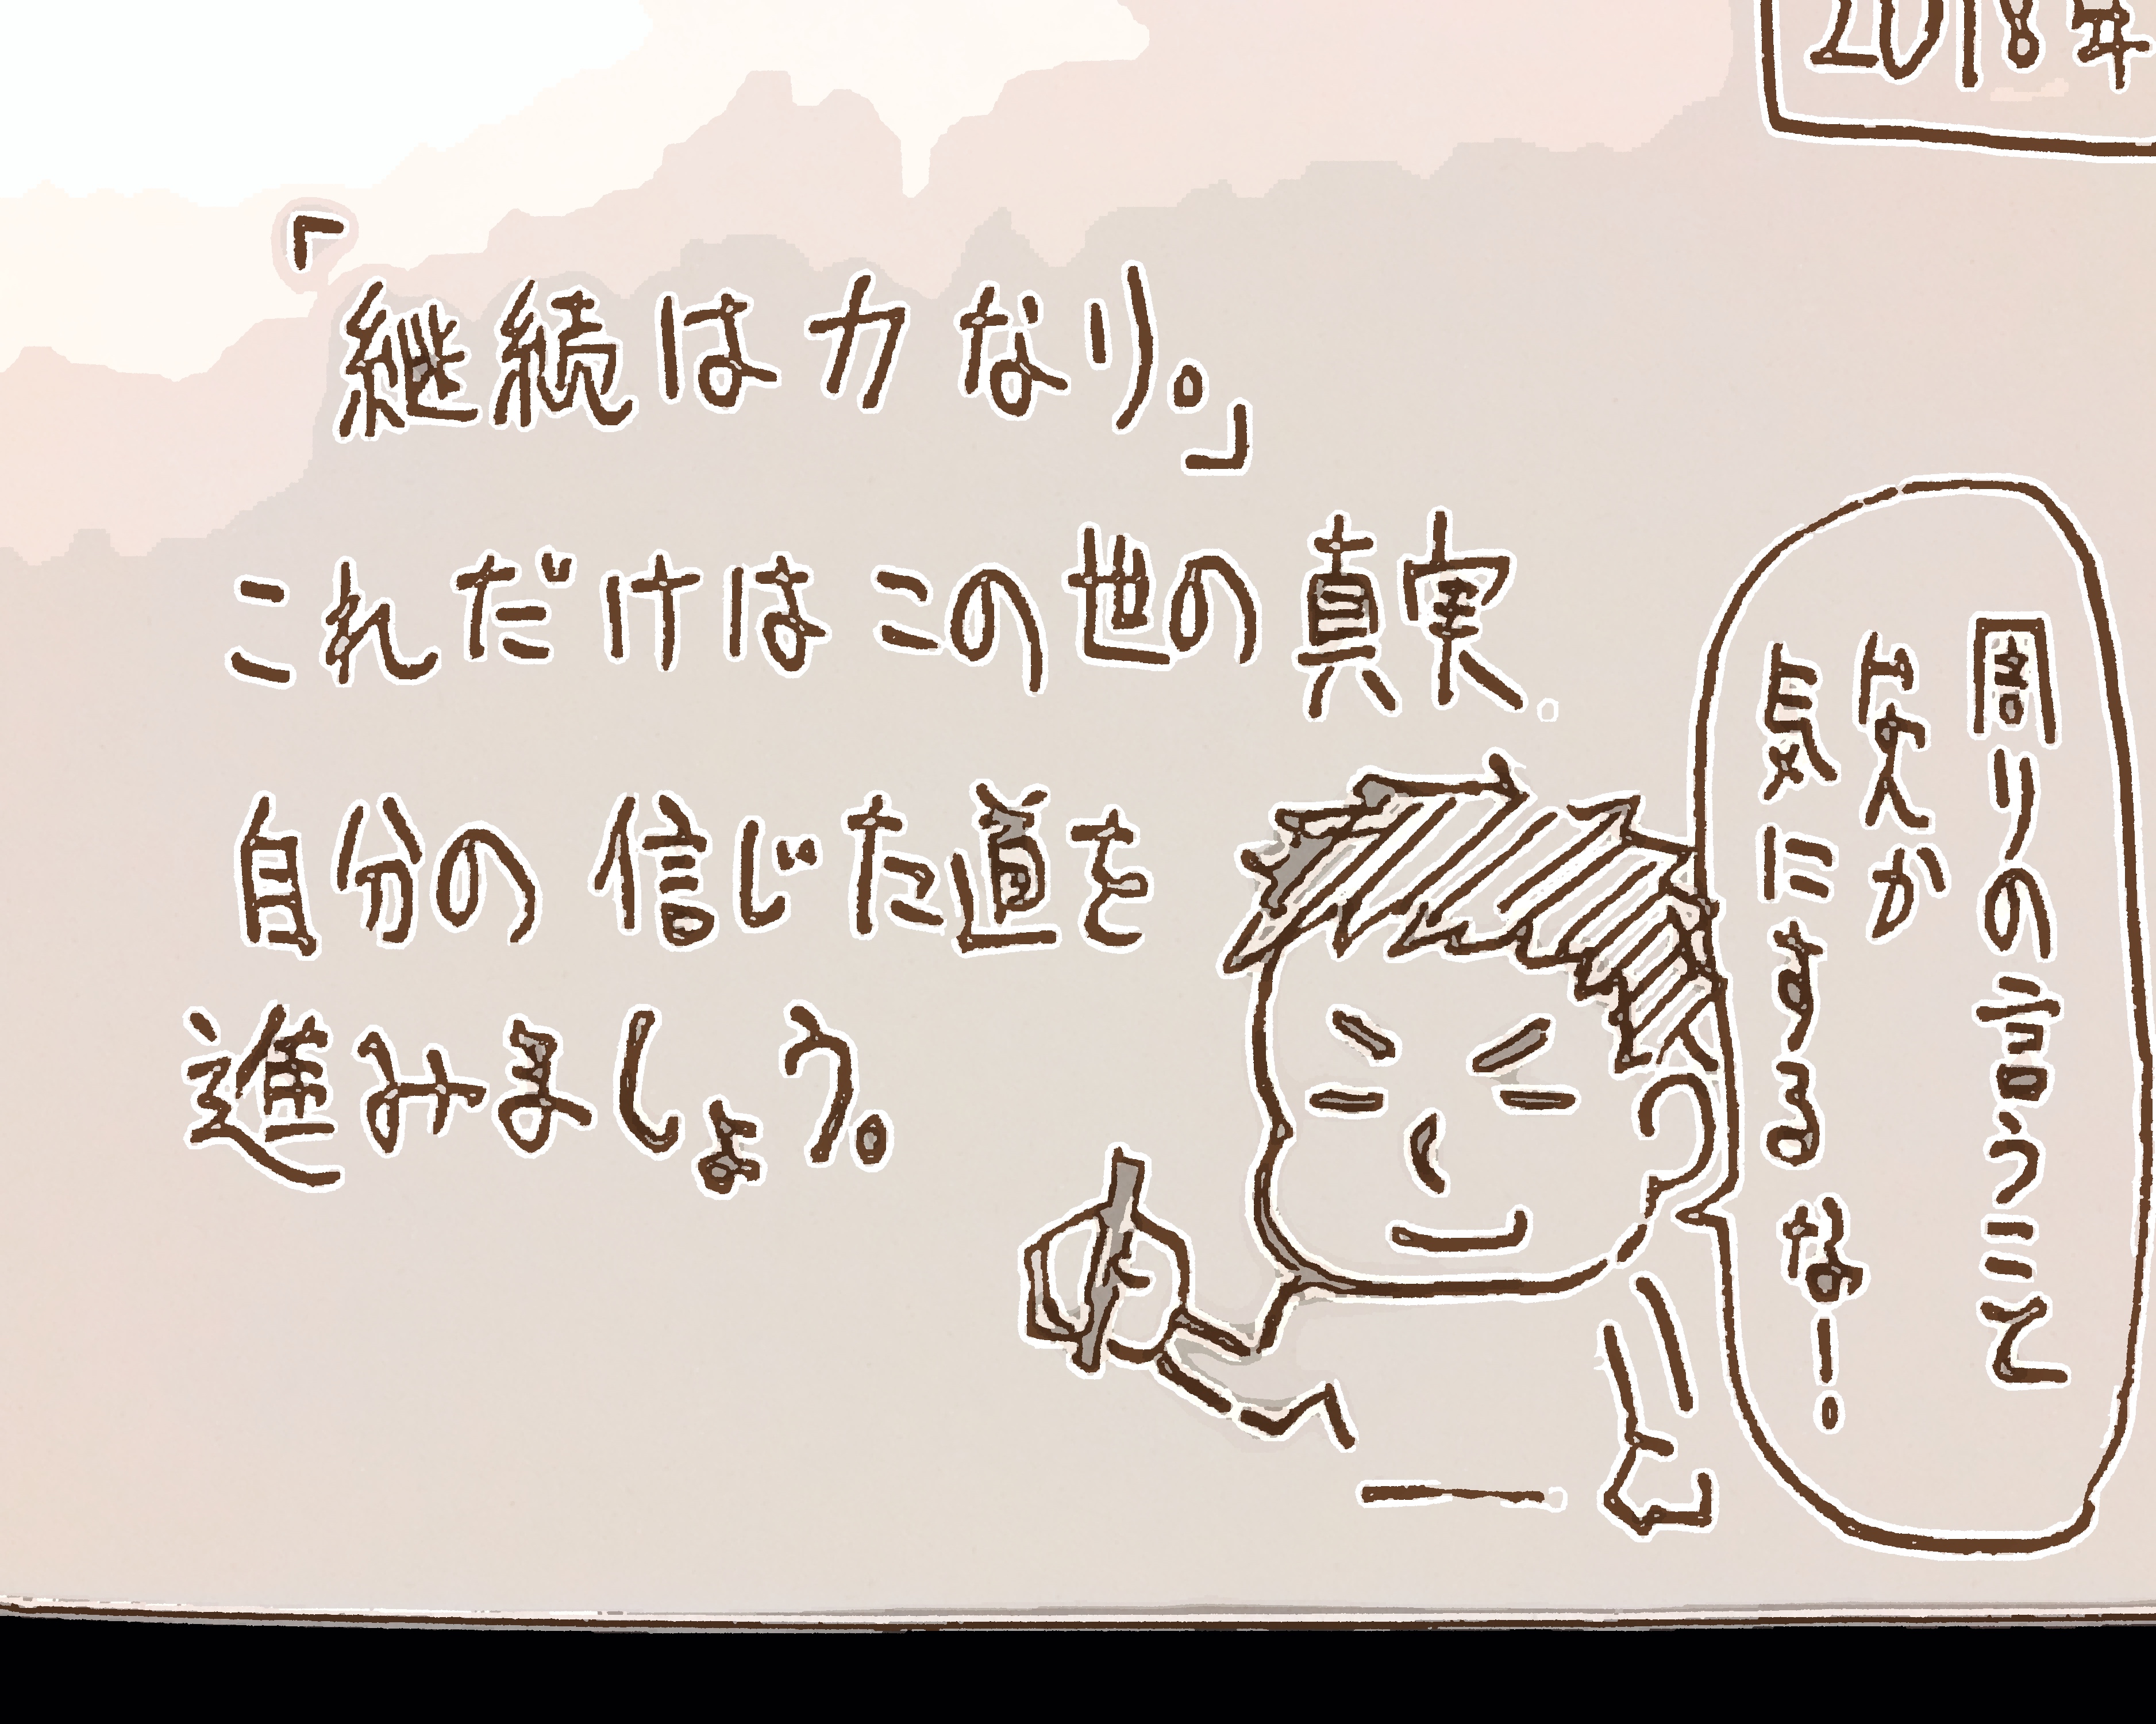 2018年
「継続は力なり。」
これだけはこの世の真実.
自分の信じた道を
進みましょう。
周りの言うこと
なんか
気にするな!